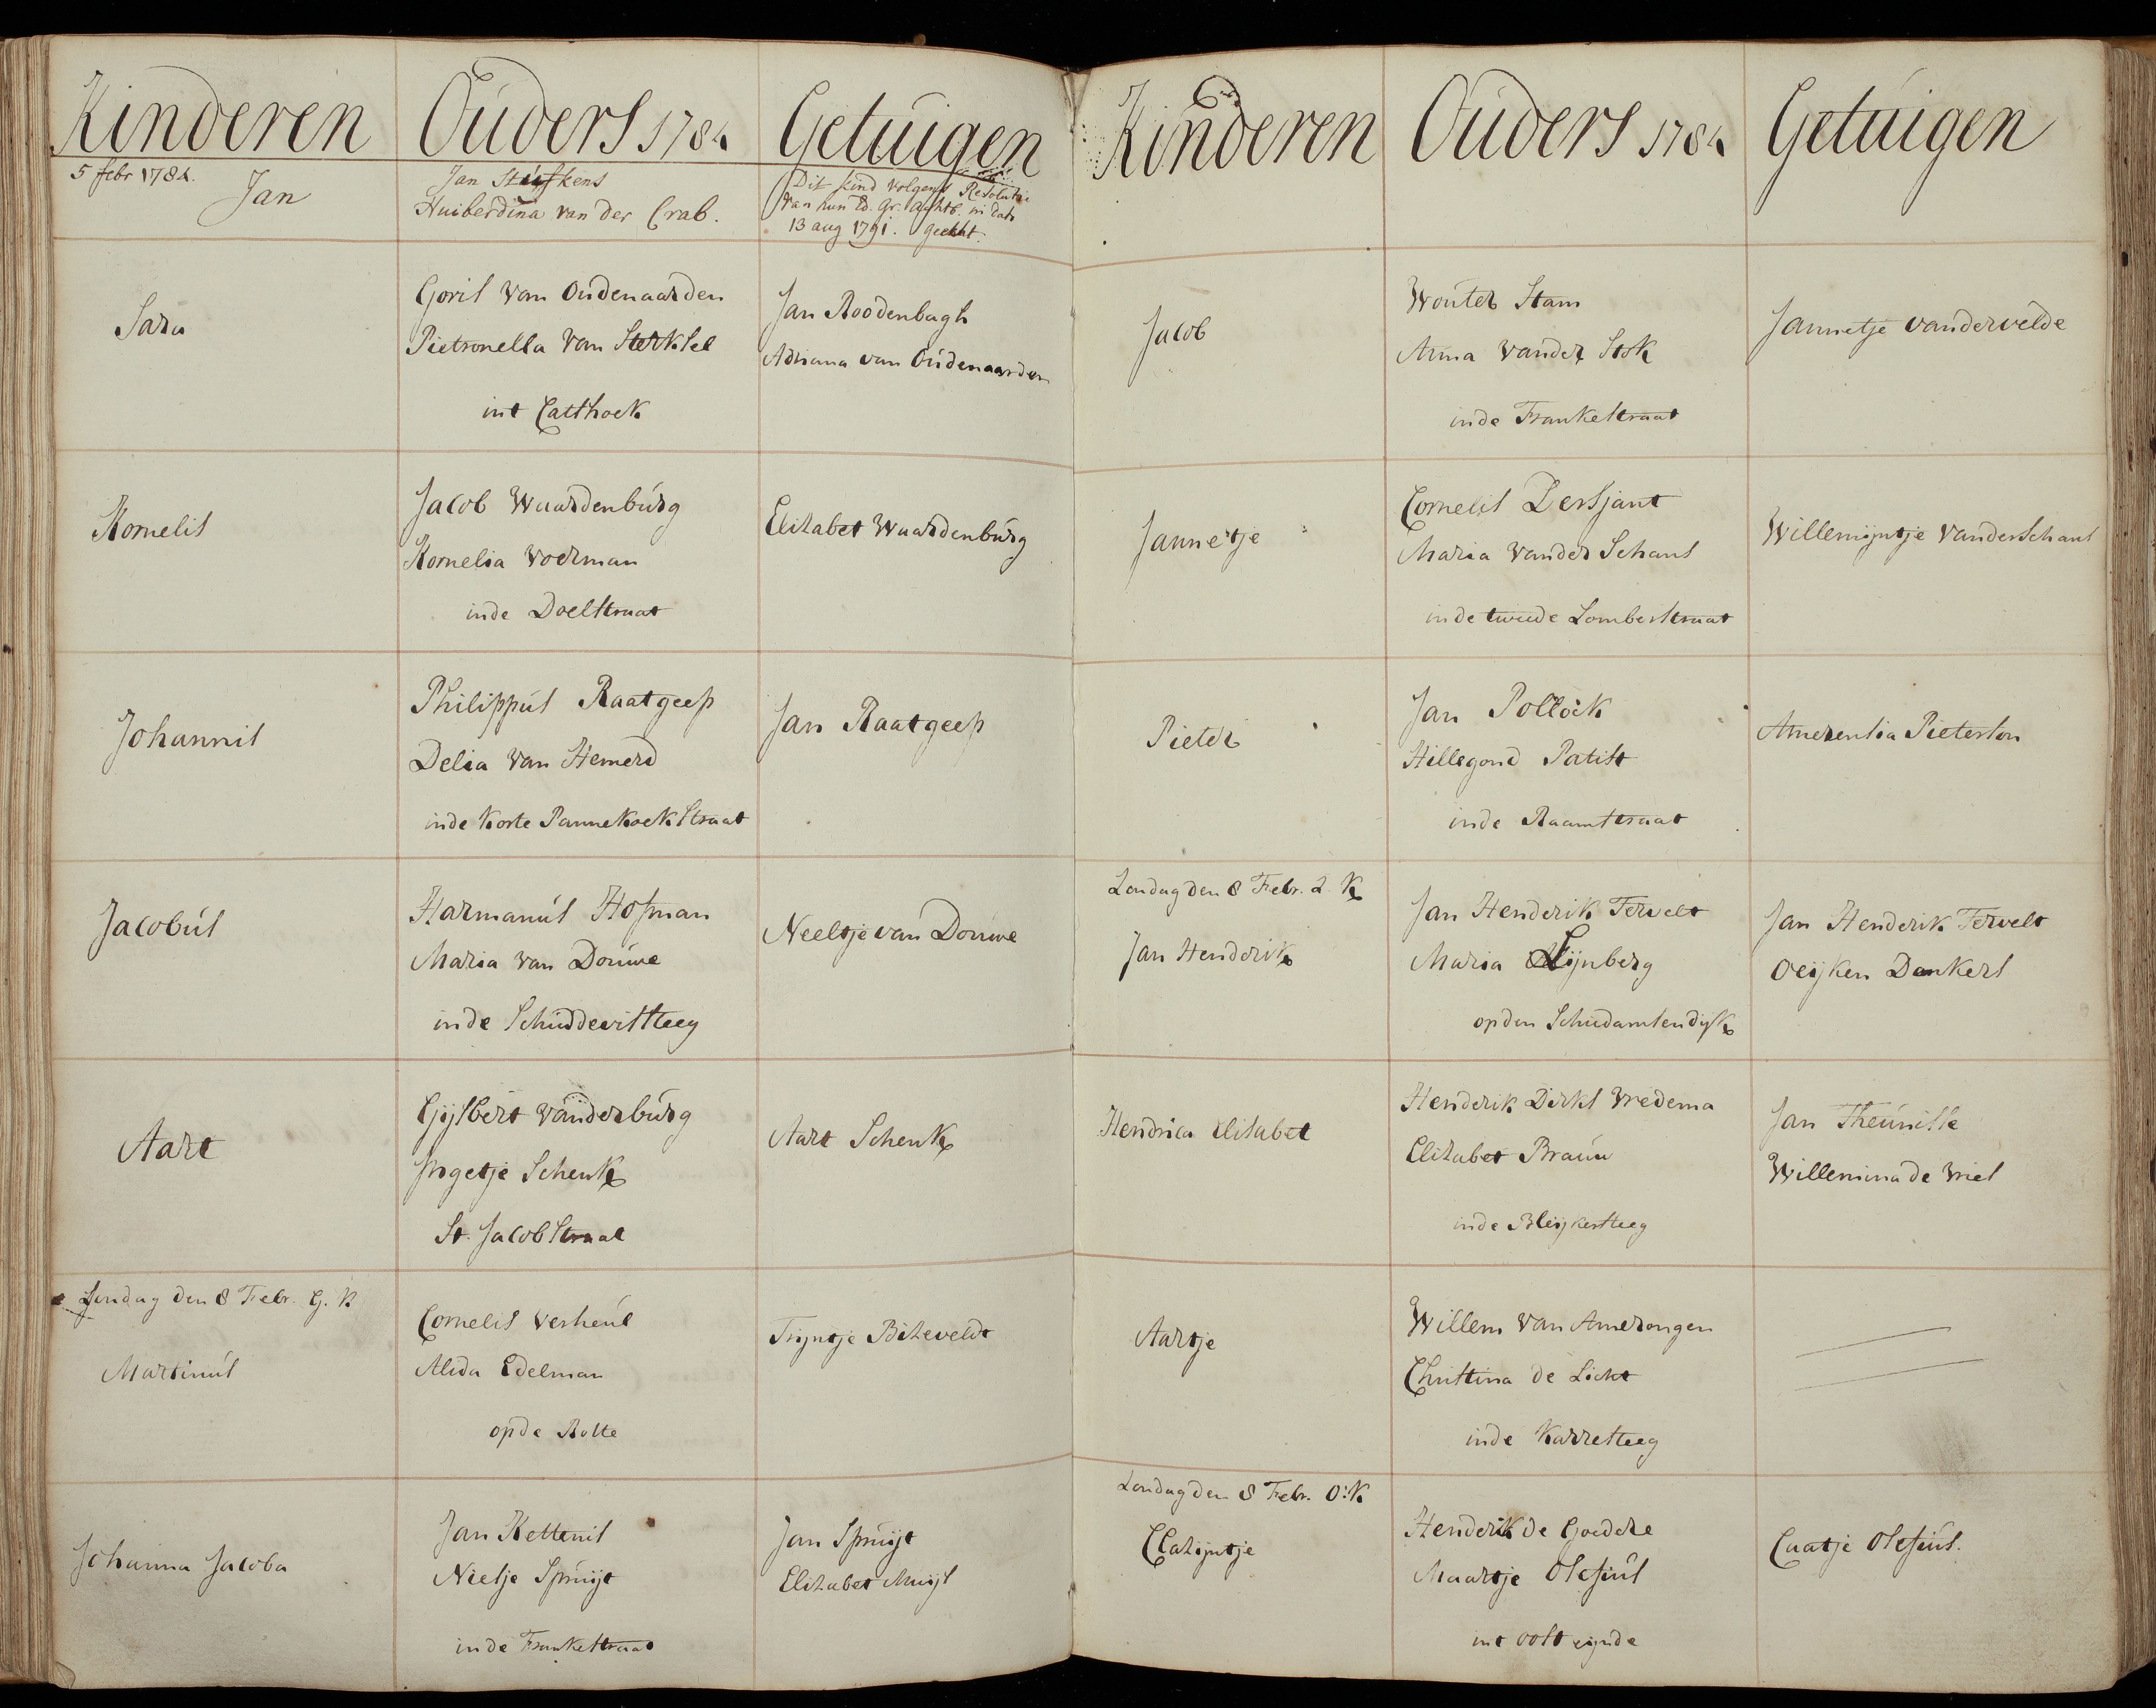 Kinderen
Ouders 1784
Getuigen
5 febr 1784.
Jan
Jan Stuifkens
Huiberdina van der Crab.
Dit kind volgens Resolutie
van hun Ed. Gr. Achtb. in dato
13 aug 1791. geecht.
Sara
Goris van Oudenaarden
Pietronella van Sterksel
int Catthoek
Jan Roodenbugh
Adriana van Oudenaarden
Kornelis
Jacob Waardenburg
Kornelia Voerman
inde Doelstraat
Elizabet Waardenburg
Johannis
Philippus Raatgeep
Delia van Hemerd
inde korte Pannekoekstraat
Jan Raatgeep
Jacobus
Harmanus Hofman
Maria van Douwe
inde Schuddevisteeg
Neeltje van Douwe
Aart
Gijsbert vanderburg
Ingetje Schenk
St. Jacobstraat
Aart Schenk
Zondag den 8 Febr. G. K
Martinus
Cornelis Verheul
Alida Edelman
opde Rotte
Trijntje Bizeveldt
Johanna Jacoba
Jan Kettenis
Neeltje Spruijt
inde Frankestraat
Jan Spruijt
Elizabet Muijs
Kinderen
Ouders 1784
Getuigen
Jacob
Wouter Stam
Anna vander Stok
inde Frankestraat
Jannetje vandervelde
Jannetje
Cornelis Dersjant
Maria vander Schans
inde tweede Lomberstraat
Willemijntje vanderSchans
Pieter
Jan Pollock
Hillegond Patist
inde Raamstraat
Amerensia Pieterson
Zondag den 8 Febr. Z. K
Jan Henderik
Jan Henderik Tervelt
Maria Lijnberg
opden Schiedamsendijk
Jan Henderik Tervelt
Oeijken Dankers
Hendrica Elisabet
Henderik Dirks Vredema
Elizabet Brauw
inde Bleijkersteeg
Jan Theunisse
Willemina de Vries
Aartje
Willem van Amerongen
Christina de Licht
inde Karresteeg
Zondag den 8 Febr. O: K
Clazijntje
Henderik de Goedere
Maartje Olesius
int oost eijnde
Caatje Olesius.